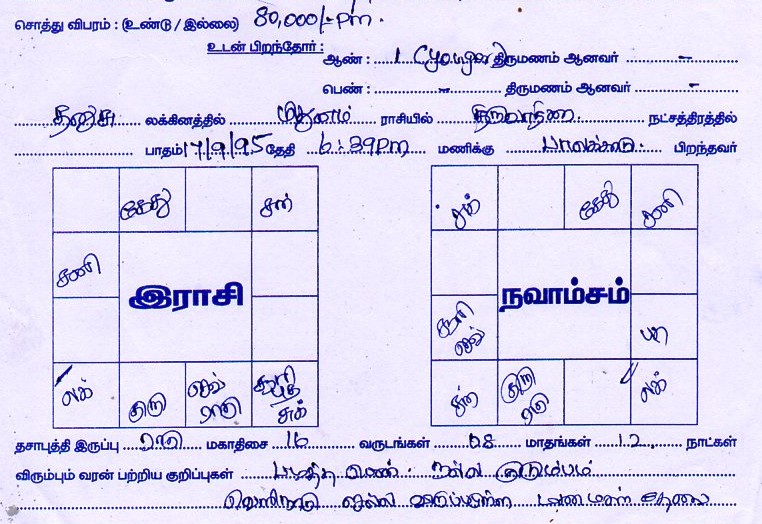 சொத்து விபரம் : (உண்டு / இல்லை) 80,000/- pm.
உடன் பிறந்தோர் :
ஆண் : 1 திருமணம் ஆனவர் -
பெண் : - திருமணம் ஆனவர் -
தனுசு லக்கினத்தில் மிதுனம் ராசியில் திருவாதிரை நட்சத்திரத்தில்
பாதம் 17/9/95 தேதி 6:39pm மணிக்கு பாலக்காடு பிறந்தவர்
கேது சன் சந் கேது சனி
சனி
இராசி நவாம்சம்
லக் குரு செவ் ராகு சூரி புத சுக் குரு ராகு லக்
தசாபுத்தி இருப்பு ராகு மகாதிசை 16 வருடங்கள் 08 மாதங்கள் 12 நாட்கள்
விரும்பும் வரன் பற்றிய குறிப்புகள் படித்த பெண். நல்ல குடும்பம்
வெளிநாடு செல்ல விருப்பமுள்ள மணமகள் தேவை